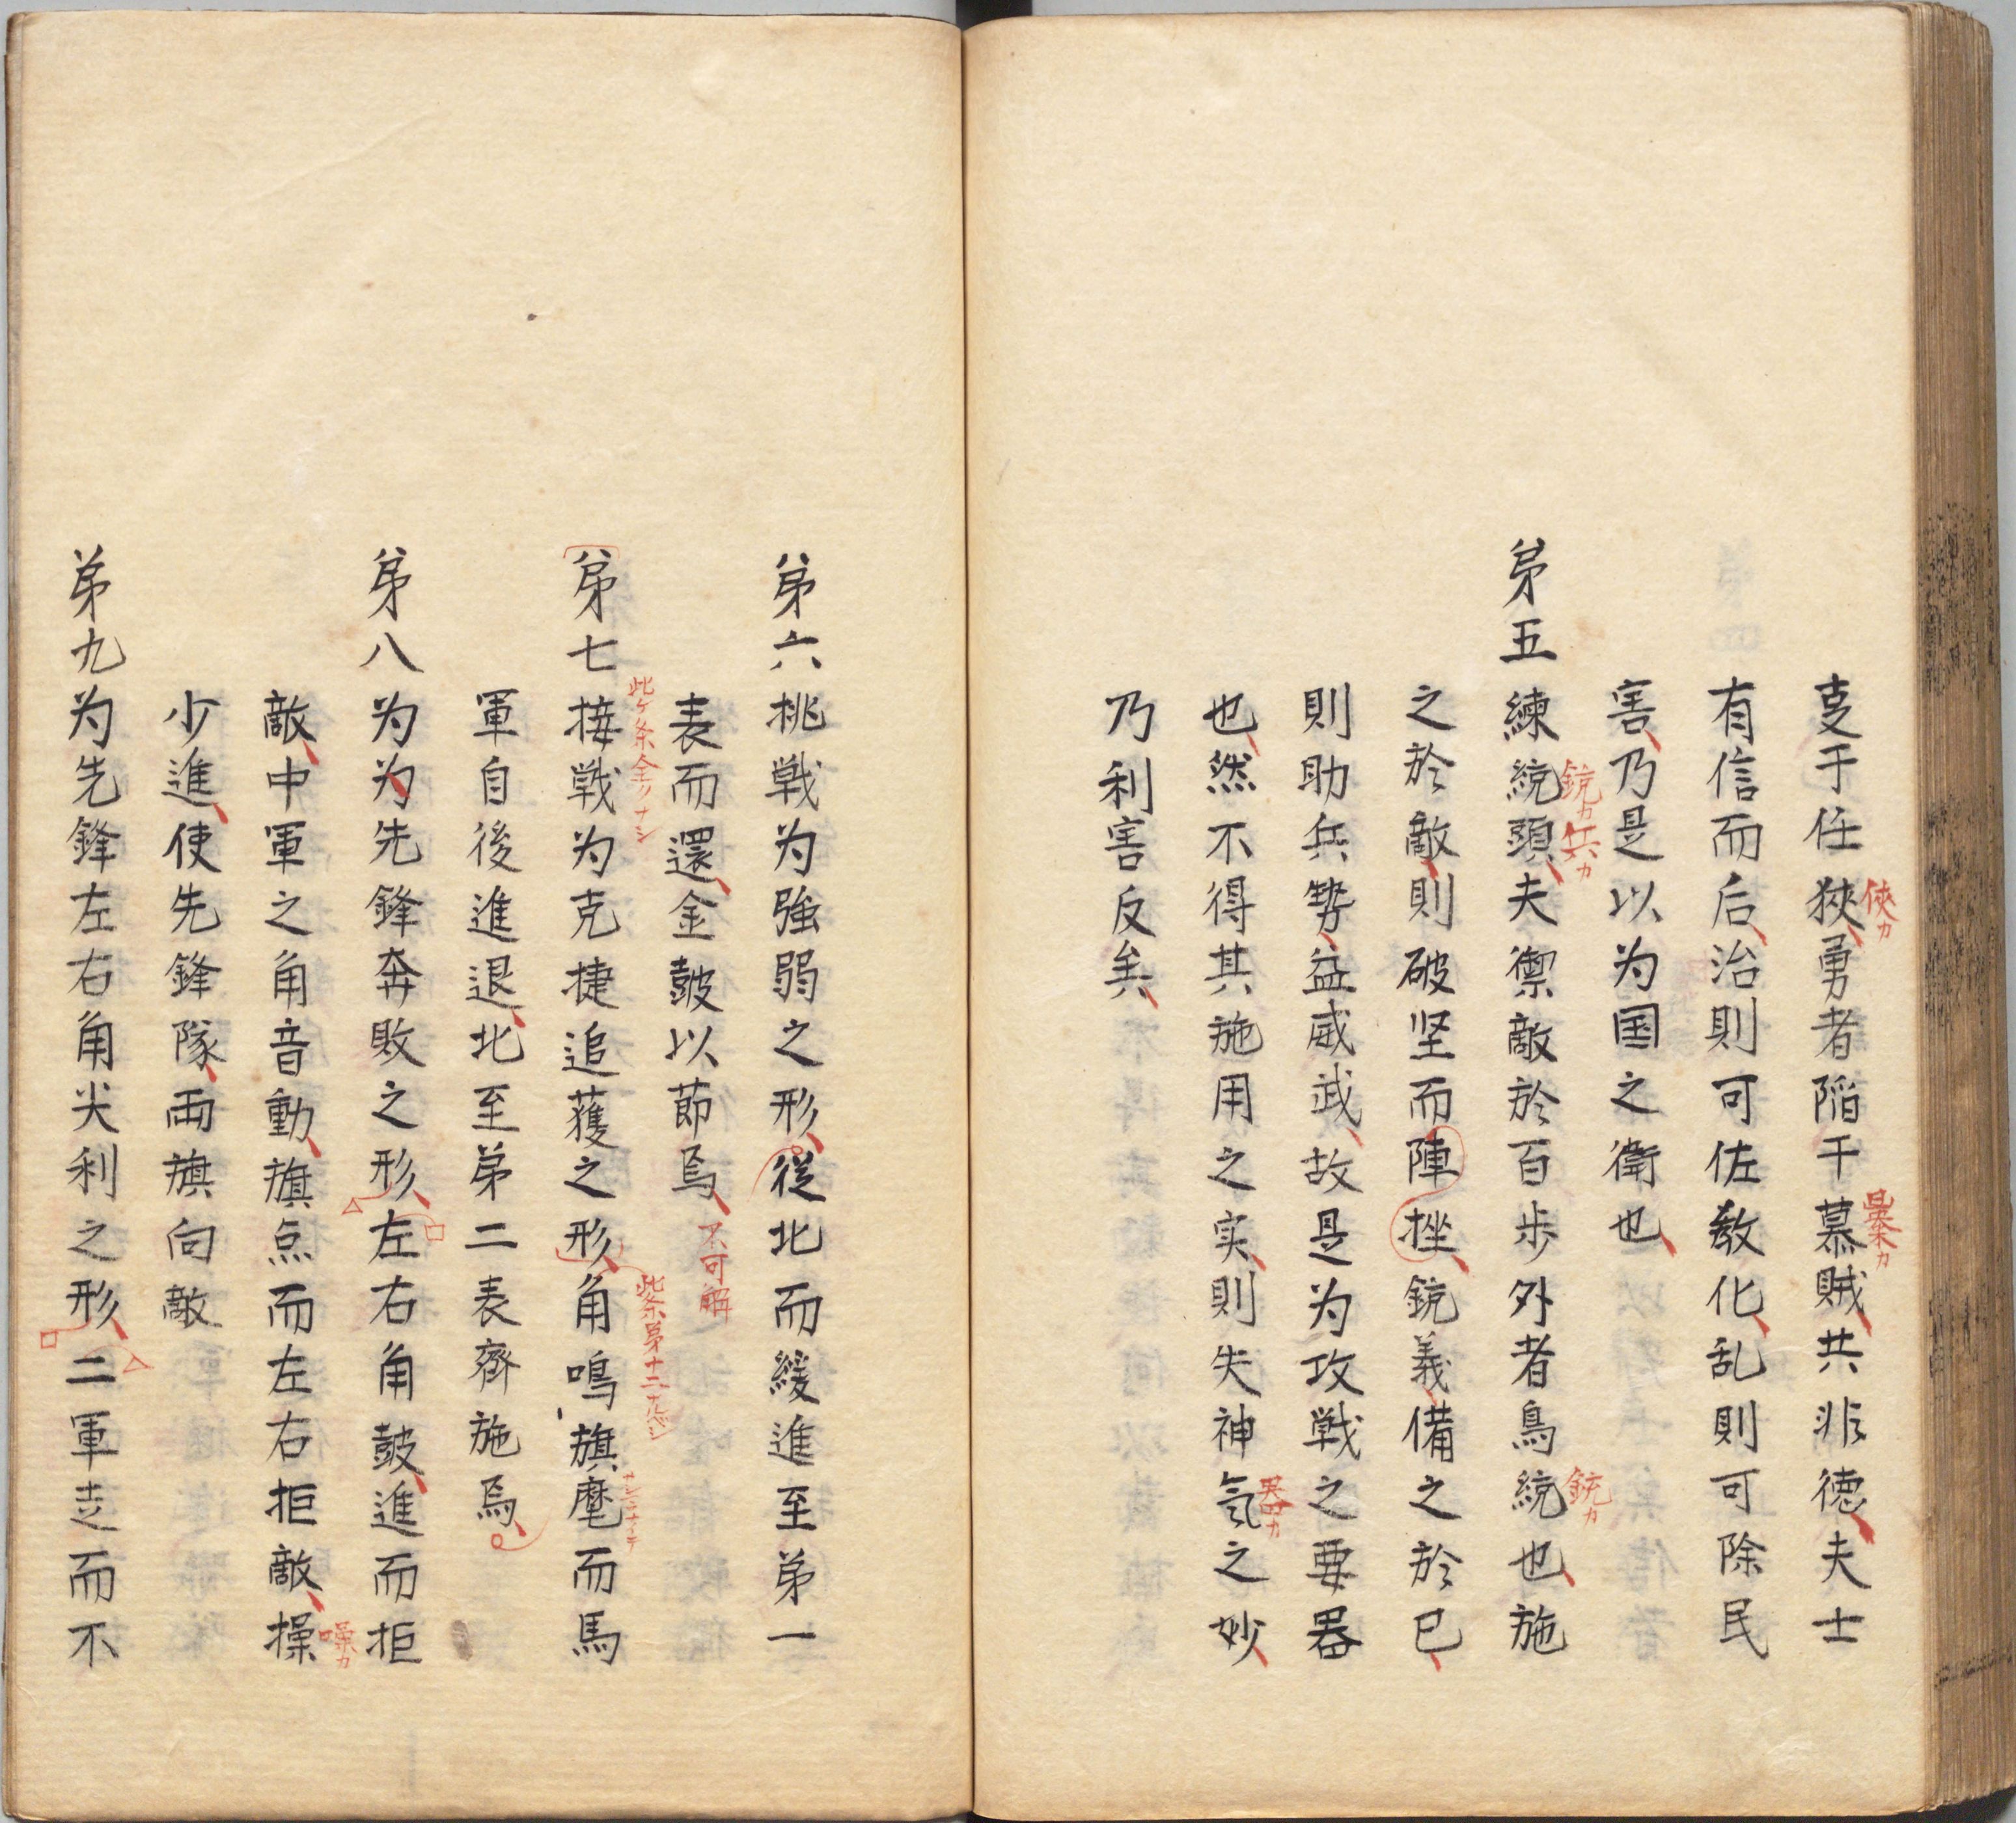 支于任狹勇者陥千慕賊共非徳夫士
俠カ
暴カ
有信而后治則可佐教化乱則可除民
害乃是以为国之衛也
第五練統頭夫禦敵於百歩外者鳥統也施
銃カ兵カ
銃カ
之於敵則破坚而陣挫鋭義備之於已
則助兵勢益威武故是为攻戦之要器
也然不得其施用之实則失神氣之妙
器カ
乃利害反矣
第六桃戦为強弱之形従北而緩進至第一
表而還金皷以節焉
不可解
第七接戦为克捷追獲之形角鳴旗麾而馬
此ケ条金クナシ
軍自後進退北至第二表齊施焉
第八为为先鋒奔敗之形左右角皷進而拒
敵中軍之角音動旗点而左右拒敵操
噪カ
少進使先鋒隊両旗向敵
第九为先鋒左右角尖利之形二軍走而不